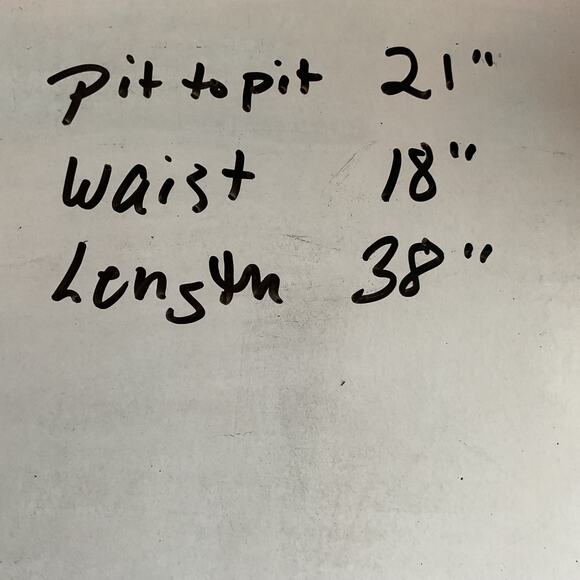 Pit to pit 21"
Waist 18"
Length 38"